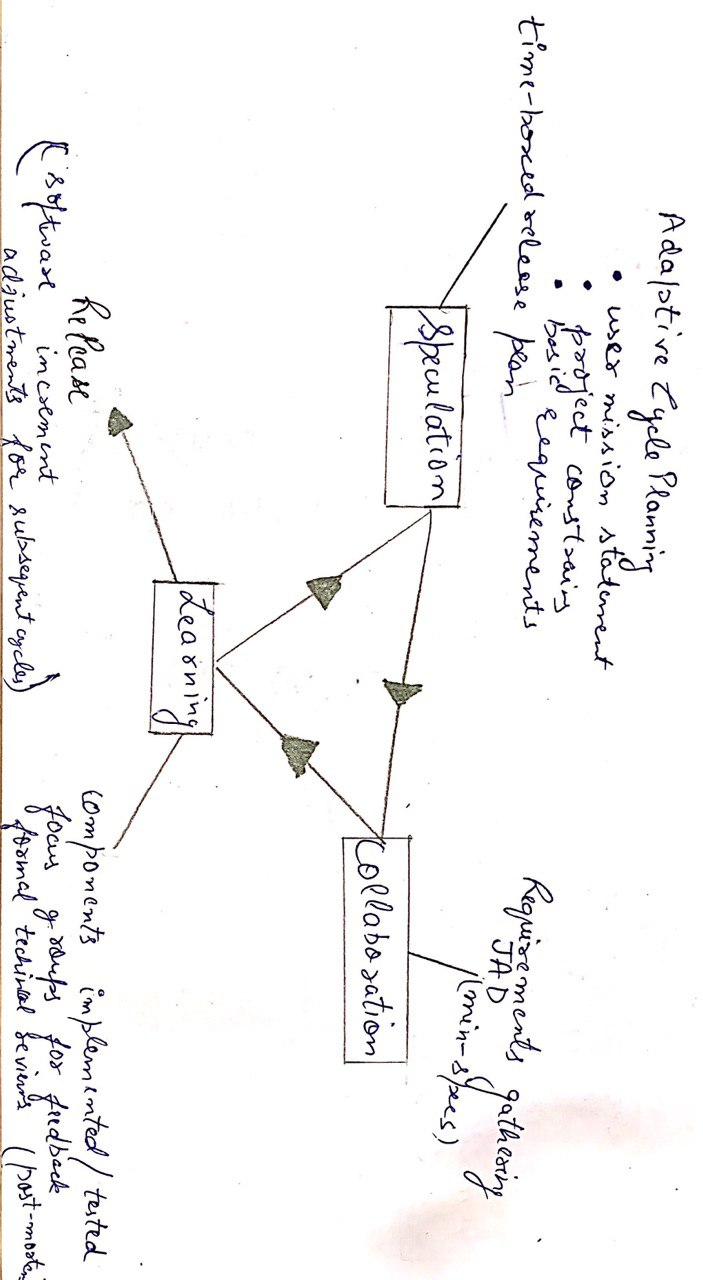 Adaptive Cycle Planning
• user mission statement
• project constrains
• basic requirements
time-boxed release plan
Requirements gathering
JAD
(min-specs)
Speculation
Collaboration
Learning
Release
(software increment
adjustments for subsequent cycles)
components implemented/tested
focus groups for feedback
formal techincal reviews (post-morte